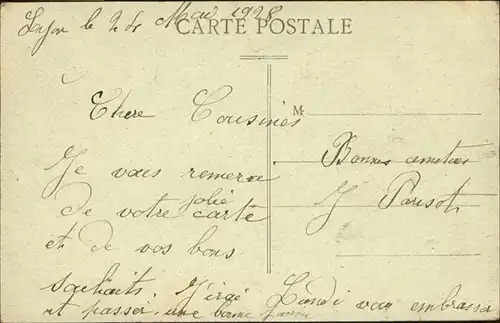 Lyon le 24 Mai 1928
CARTE POSTALE
Chere Cousines
M
Je vous remercie
de votre jolie carte
et de vos bons
souhaits. J'irai Lundi vous embrasser
et passer une bonne
Bonnes amities
J Parisot